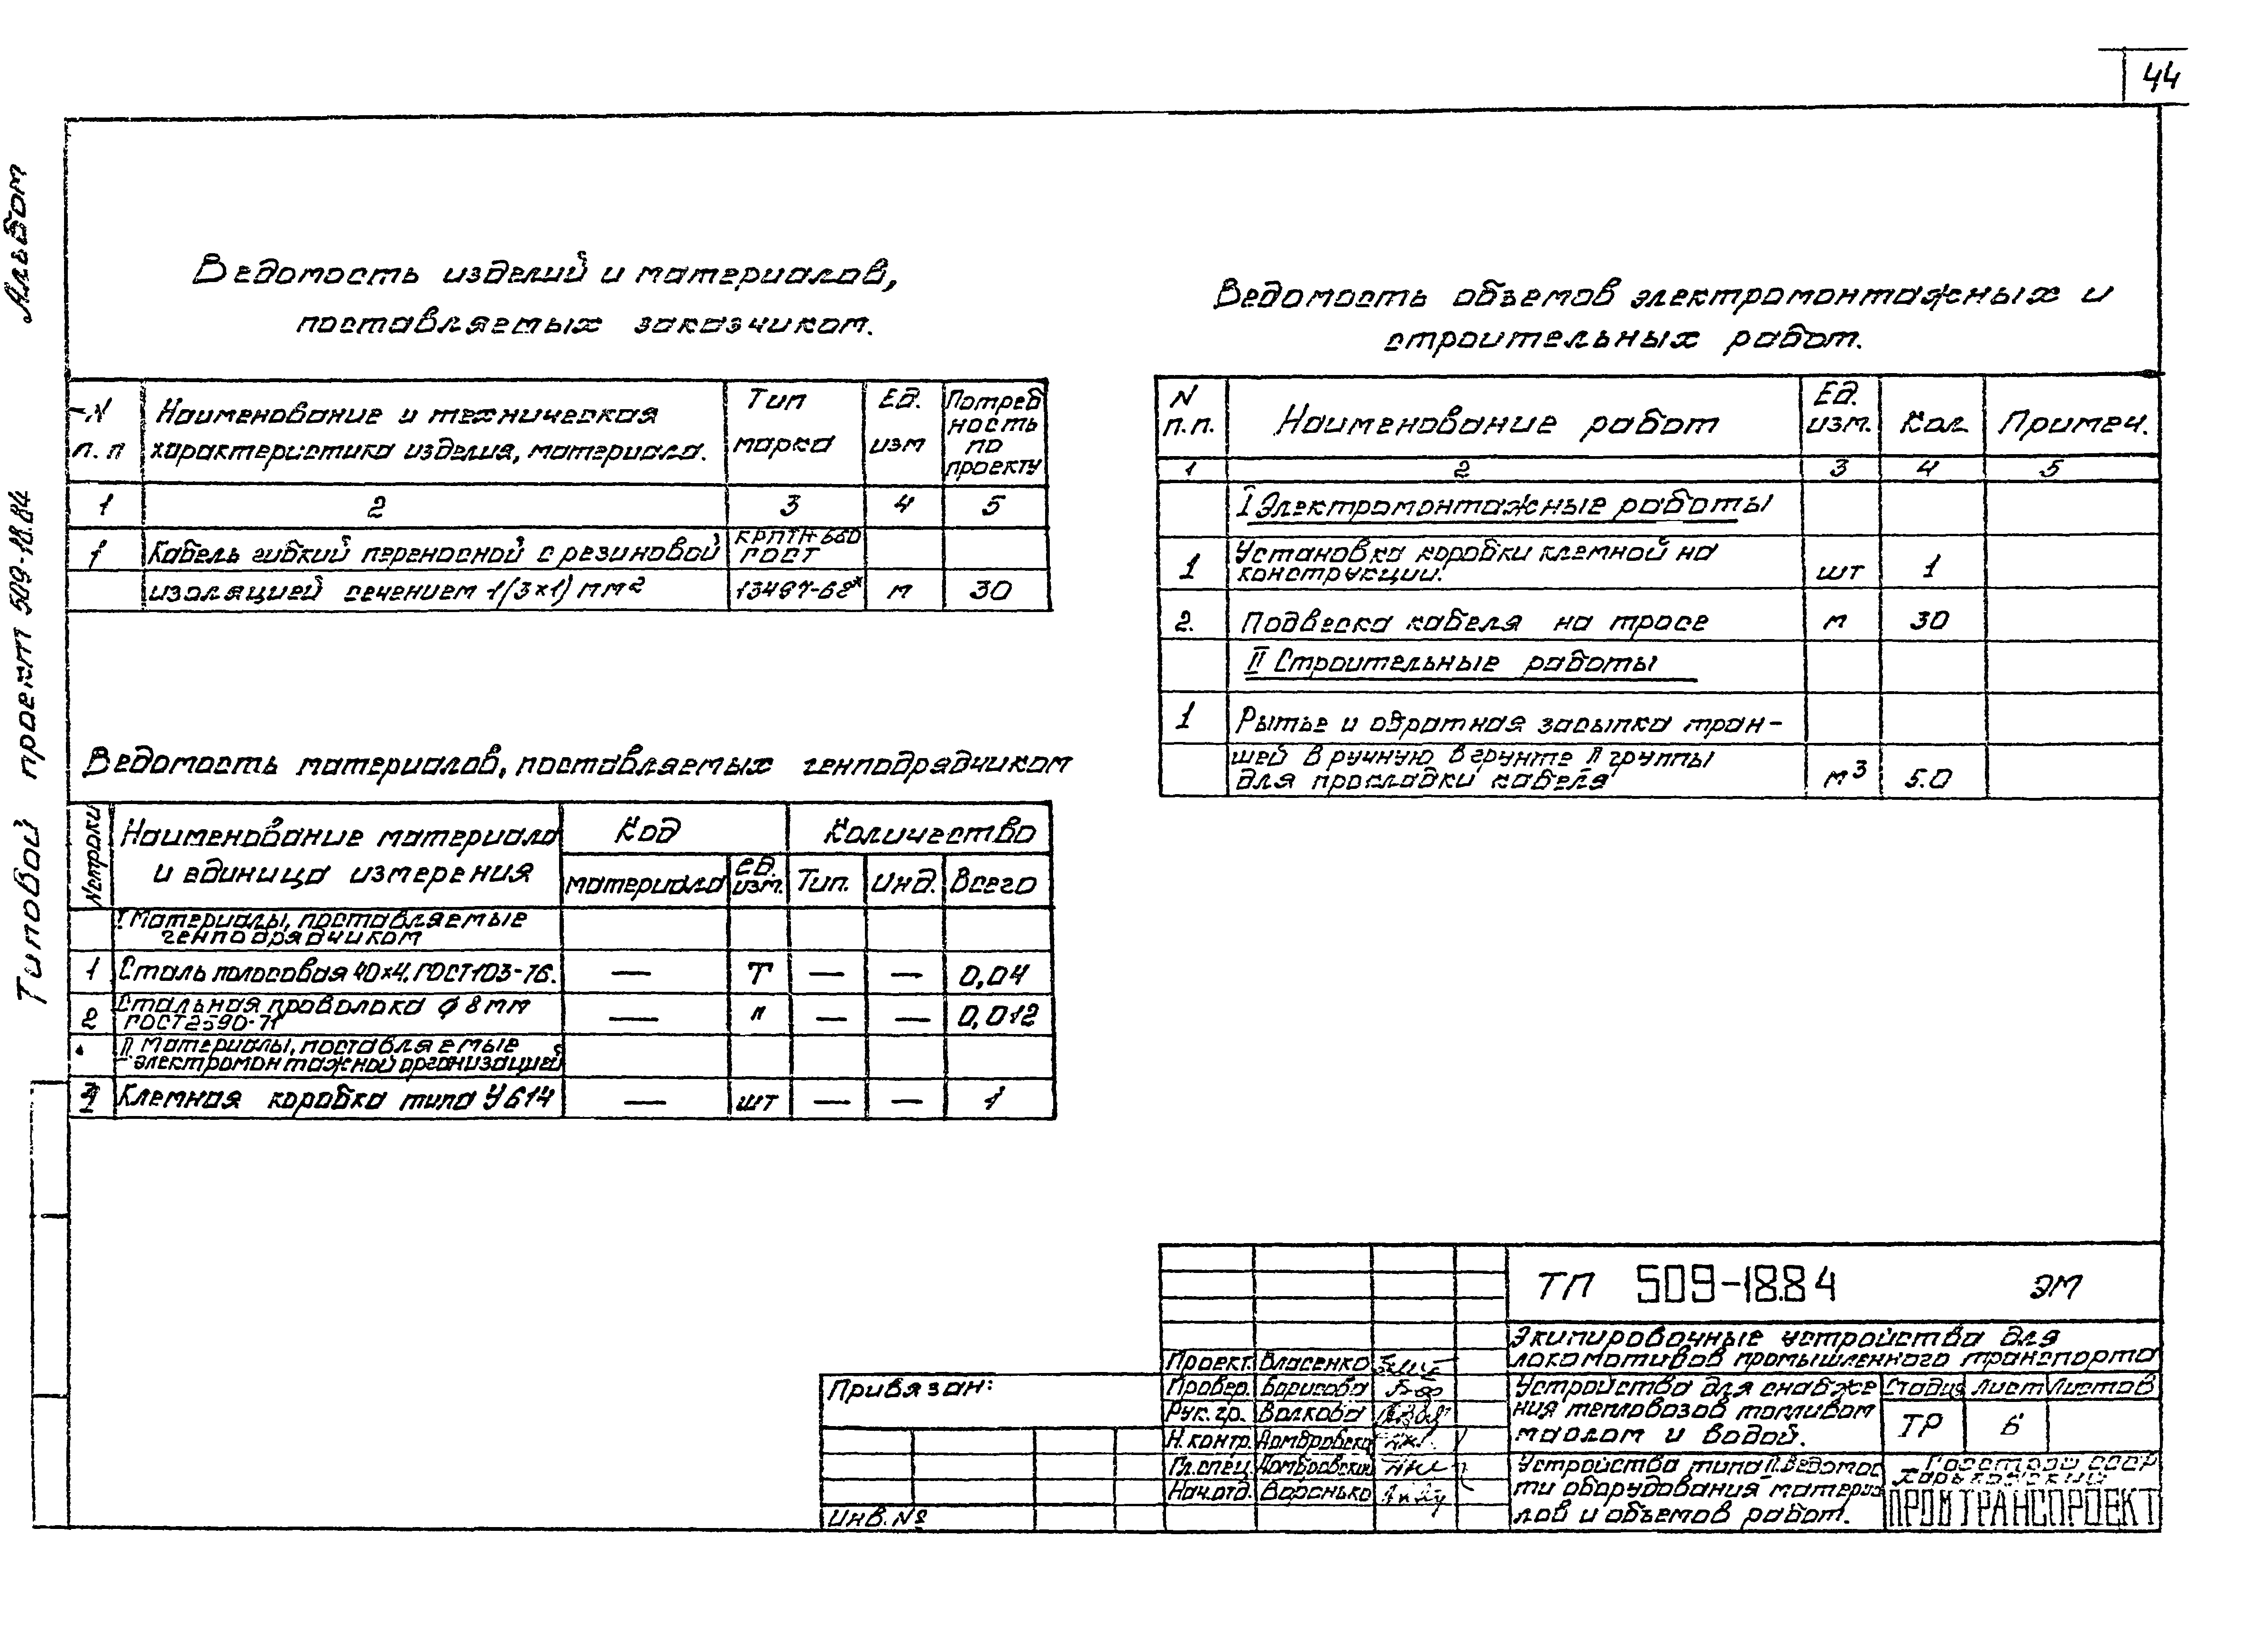 44
Альбом
Типовой проект 509-18.84
Ведомость изделий и материалов,
поставляемых заказчиком.
N п.п
Наименование и техническая
характеристика изделия, материала.
Тип марка
Ед. изм
Потреб
ность
по
проекту
1 2 3 4 5
1 Кабель гибкий переносной с резиновой КРПТН-660 ГОСТ
изоляцией сечением 1(3×1) мм² 13497-68* м 30
Ведомость материалов, поставляемых генподрядчиком
N строки
Наименование материала
и единица измерения
Код Количество
материала ед. изм. Тип. Инд. Всего
I Материалы, поставляемые
генподрядчиком
1 Сталь полосовая 40×4. ГОСТ103-76. — Т — — 0,04
2 Стальная проволока ϕ 8 мм
ГОСТ2590-71 — " — — 0,012
II Материалы, поставляемые
электромонтажной организацией
1 Клемная коробка типа У614 — шт — — 1
Ведомость объемов электромонтажных и
строительных работ.
N п.п. Наименование работ Ед. изм. Кол. Примеч.
1 2 3 4 5
I Электромонтажные работы
1 Установка коробки клемной на
конструкции. шт 1
2. Подвеска кабеля на тросе м 30
II Строительные работы
1 Рытье и обратная засыпка тран-
шей вручную в грунте II группы
для прокладки кабеля м³ 5.0
ТП 509-18.84 ЭМ
Экипировочные устройства для
локомотивов промышленного транспорта
Проект. Власенко
Провер. Борисова
Рук. гр. Волкова
Н. контр. Домбровский
Гл. спец. Домбровский
Нач. отд. Воронько
Устройства для снабже
ния тепловозов топливом
маслом и водой.
Стадия Лист Листов
ТР 6
Устройства типа II. Ведомос
ти оборудования материа
лов и объемов работ.
Госстрой СССР
Харьковский
ПРОМТРАНСПРОЕКТ
Привязан:
Инв. №